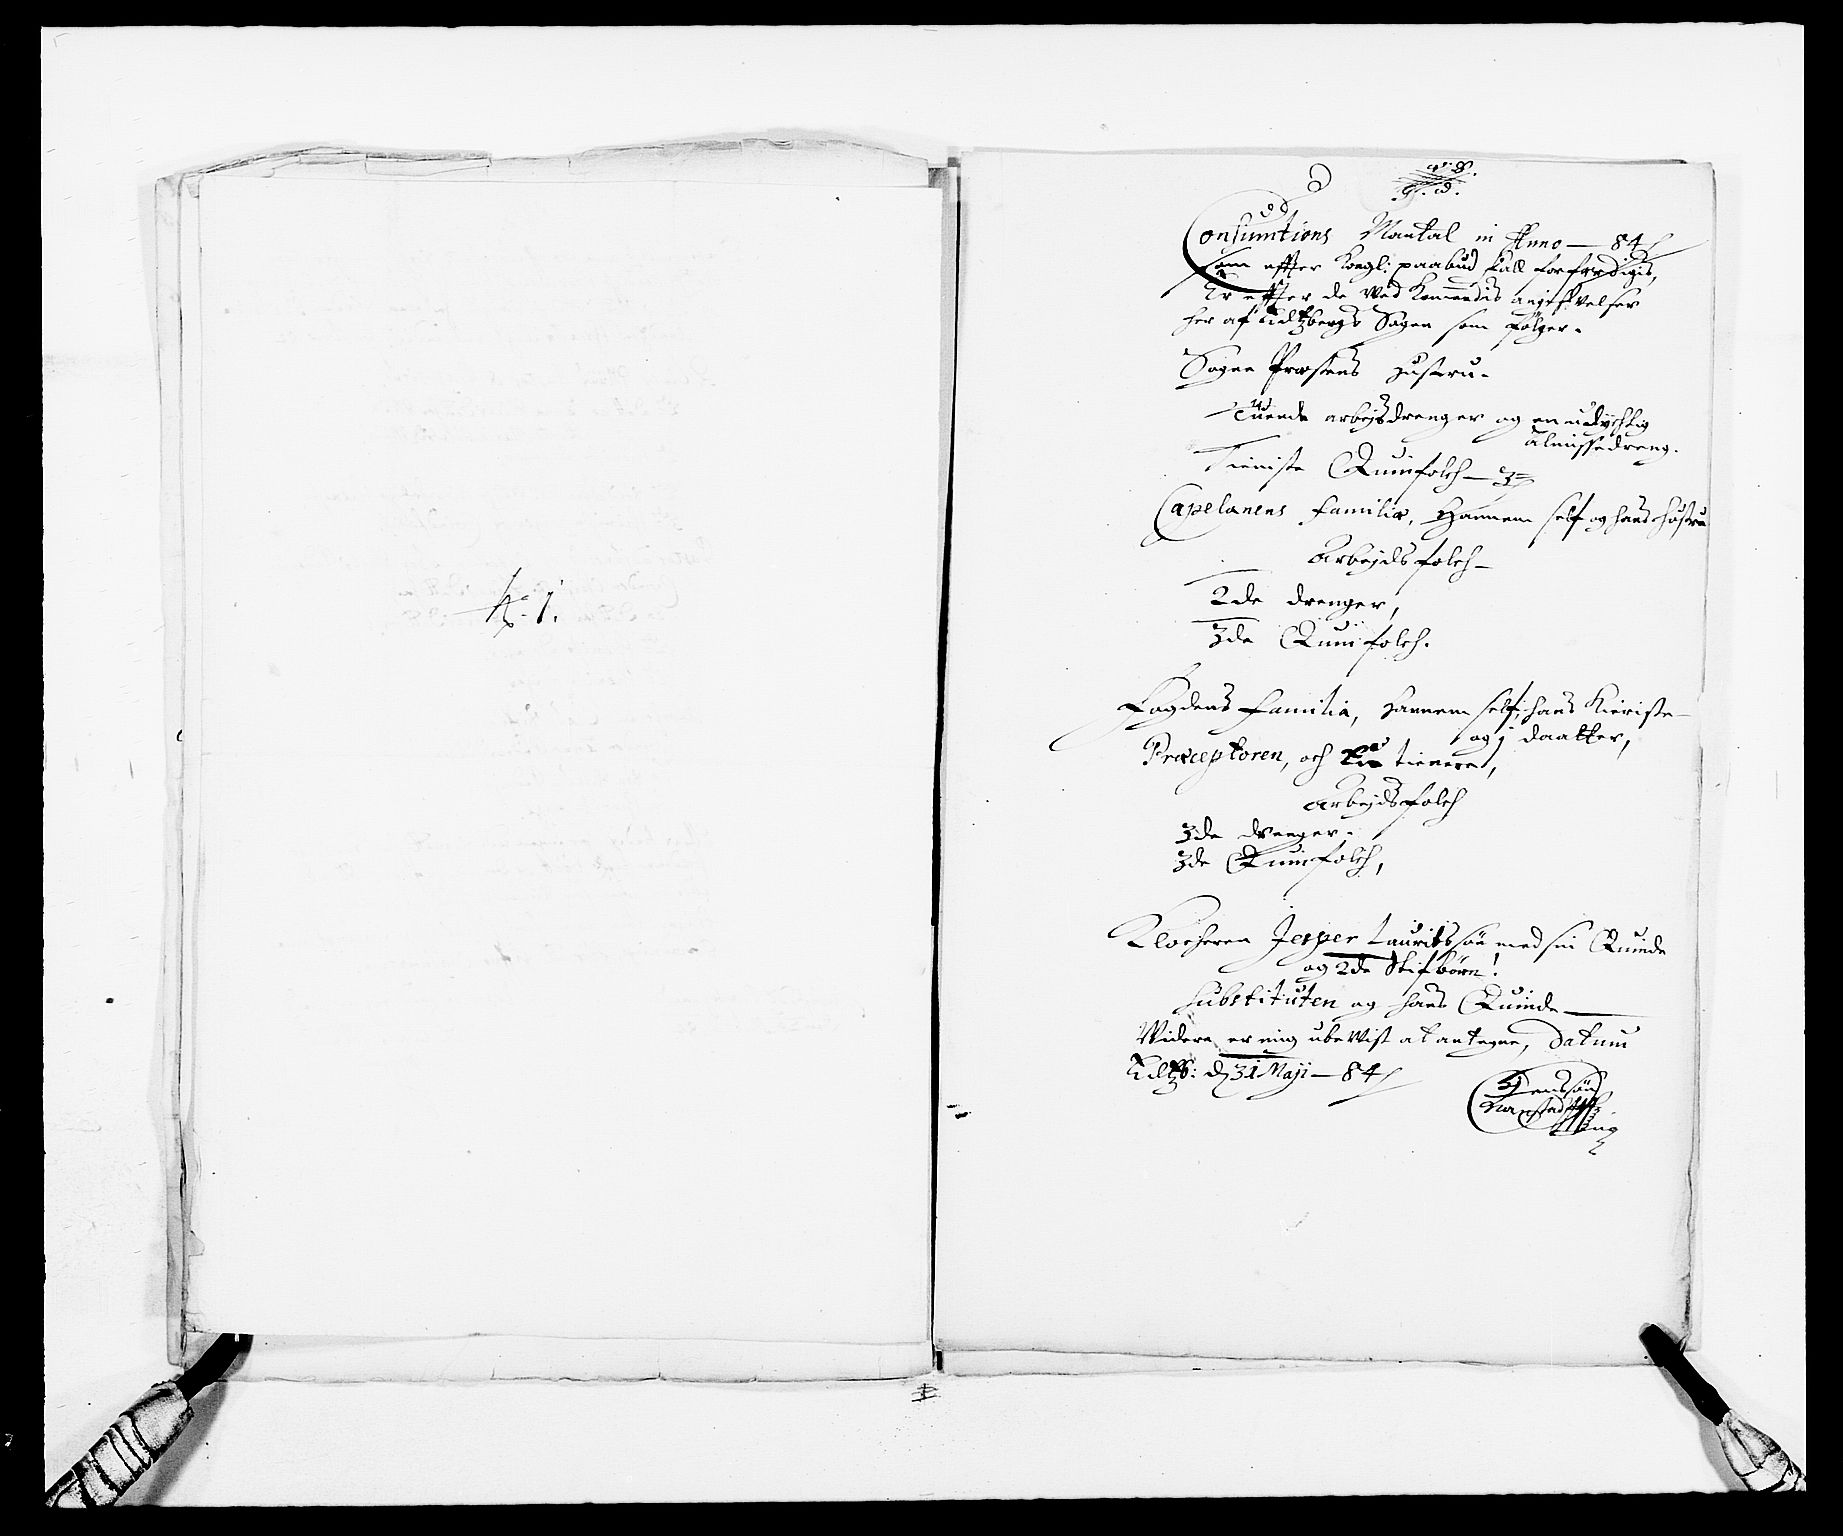 N: 1.
Consumtions Mantal in Anno — 84
som effter Kongl: paabud skall forferdigis,
Er effter de ved Kommendis angifvelser
her af Sogen som følger.
Sogne Præstens Hustru.
Tuende arbejdsdrenger og en udychtig
almissedreng.
Tieniste Quinfolch — 3
Capelanens familie, Hannem self og hans Hustru
Arbejdsfolch —
2de drenger,
3de Quinfolch.
Fogdens familia, Hannem self, hans Kieriste
og 1 daatter,
Præceptoren, och tienere,
Arbejdsfolch
3de drenger.
3de Quinfolch,
Klocheren Jesper Lauritssøn med sin Quinde
og 2de Stifbørn!
Substituten og hans Quinde —
Widere er mig ubewist at antegne, Datum
d 31 Maji — 84
Jenssøn